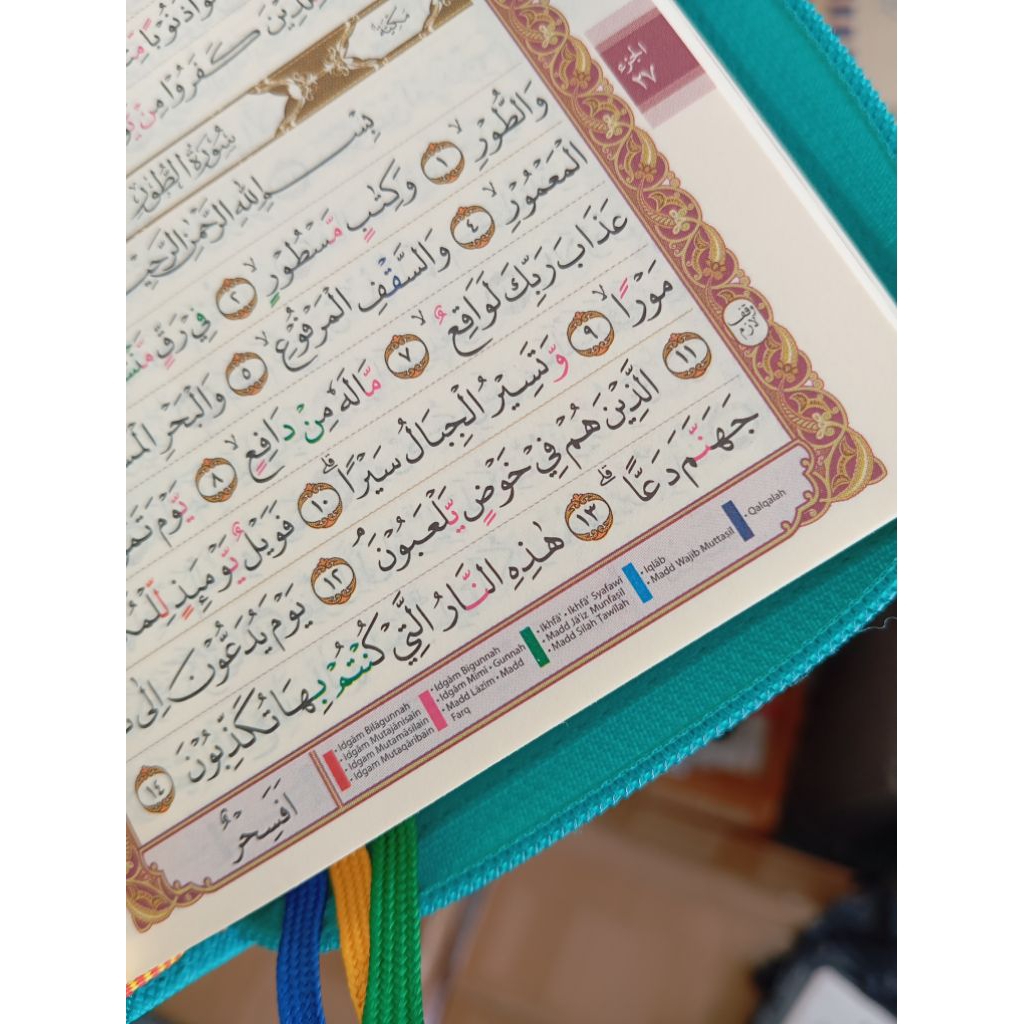 ذَنُوْبًا
كَفَرُوْا مِنْ
الجزء ٢٧
مكية
سُوْرَةُ الطُّوْرِ
بِسْمِ اللّٰهِ الرَّحْمٰنِ الرَّحِيْ
وَالطُّوْرِۙ ١ وَكِتٰبٍ مَّسْطُوْرٍۙ ٢ فِيْ رَقٍّ مَّنْشُ
الْمَعْمُوْرِۙ ٤ وَالسَّقْفِ الْمَرْفُوْعِۙ ٥ وَالْبَحْرِ الْمَسْ
عَذَابَ رَبِّكَ لَوَاقِعٌۙ ٧ مَّا لَهٗ مِنْ دَافِعٍۙ ٨ يَّوْمَ تَمُ
مَوْرًاۙ ٩ وَّتَسِيْرُ الْجِبَالُ سَيْرًاۗ ١٠ فَوَيْلٌ يَّوْمَىِٕذٍ لِّلْمُ
١١ الَّذِيْنَ هُمْ فِيْ خَوْضٍ يَّلْعَبُوْنَۘ ١٢ يَوْمَ يُدَعُّوْنَ اِلٰى
جَهَنَّمَ دَعًّاۗ ١٣ هٰذِهِ النَّارُ الَّتِيْ كُنْتُمْ بِهَا تُكَذِّبُوْنَ ١٤
وقف لازم
اَفَسِحْرٌ
• Idgām Bilāgunnah
• Idgām Mutajānisain
• Idgam Mutamāsilain
• Idgam Mutaqāribain
• Idgām Bigunnah
• Idgām Mimi • Gunnah
• Madd Lāzim • Madd Farq
• Ikhfā' • Ikhfā' Syafawi
• Madd Jā'iz Munfaşil
• Madd Silah Tawilah
• Iqlāb
• Madd Wajib Muttaşil
• Qalqalah